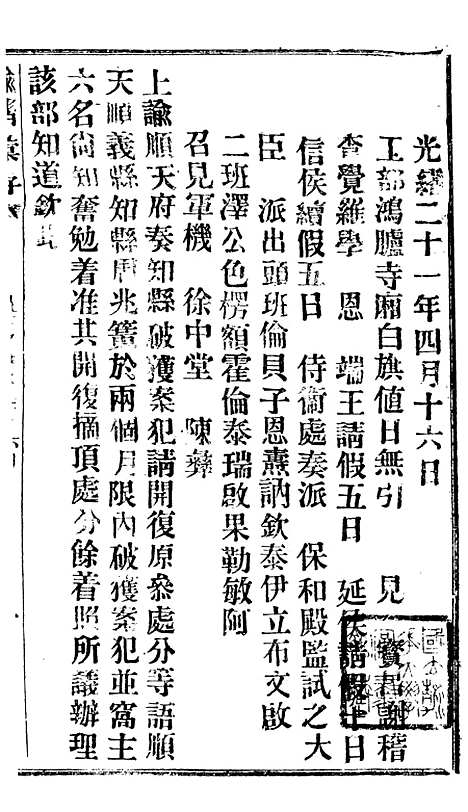 光緒二十一年四月十六日
工部鴻臚寺廂白旗値日無引　見　寶昌謝稽
查覺羅學　恩　端王請假五日　延 請假十日
信侯續假五日　侍衞處奏派　保和殿監試之大
臣　派出頭班倫貝子恩燾訥欽泰伊立布文啟
二班澤公色楞額霍倫泰瑞啟果勒敏阿
召見軍機　徐中堂　陳彝
上諭順天府奏知縣破獲案犯請開復原叅處分等語順
天順義縣知縣唐兆 於兩個月限內破獲案犯並窩主
六名尙知奮勉着准其開復摘頂處分餘着照所議辦理
該部知道欽此
諭摺彙存